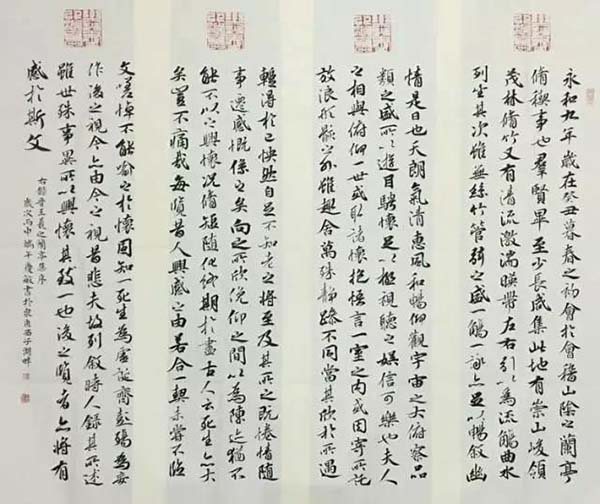 永和九年歲在癸丑暮春之初會於會稽山陰之蘭亭
脩稧事也群賢畢至少長咸集此地有崇山峻領
茂林脩竹又有清流激湍暎帶左右引以為流觴曲水
列坐其次雖無絲竹管弦之盛一觴一詠亦足以暢敘幽
情是日也天朗氣清惠風和暢仰觀宇宙之大俯察品
類之盛所以遊目騁懷足以極視聽之娛信可樂也夫人
之相與俯仰一世或取諸懷抱悟言一室之內或因寄所託
放浪形骸之外雖趣舍萬殊靜躁不同當其欣於所遇
暫得於己怏然自足不知老之將至及其所之既惓情隨
事遷感慨係之矣向之所欣俛仰之間以為陳迹猶不
能不以之興懷況脩短隨化終期於盡古人云死生亦大
矣豈不痛哉每覽昔人興感之由若合一契未嘗不臨
文嗟悼不能喻之於懷固知一死生為虛誕齊彭殤為妄
作後之視今亦由今之視昔悲夫故列敘時人錄其所述
雖世殊事異所以興懷其致一也後之覽者亦將有
感於斯文
右錄晉王羲之蘭亭集序
歲次丙申端午慶敏書於泉唐西子湖畔